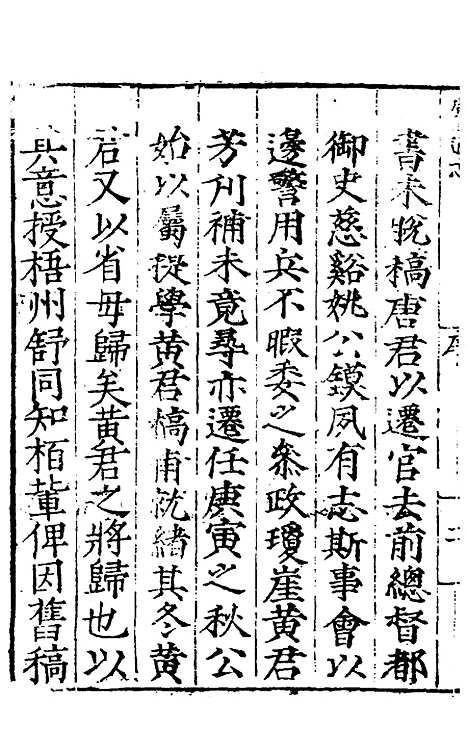 書未脫稿唐君以遷官去前總督都
御史慈谿姚公鏌夙有志斯事會以
邊警用兵不暇委之叅政瓊崖黃君
芳刋補未竟尋亦遷任庚寅之秋公
始以屬提學黃君槁甫就緒其冬黃
君又以省母歸矣黃君之將歸也以
其意授梧州舒同知栢軰俾因舊稿